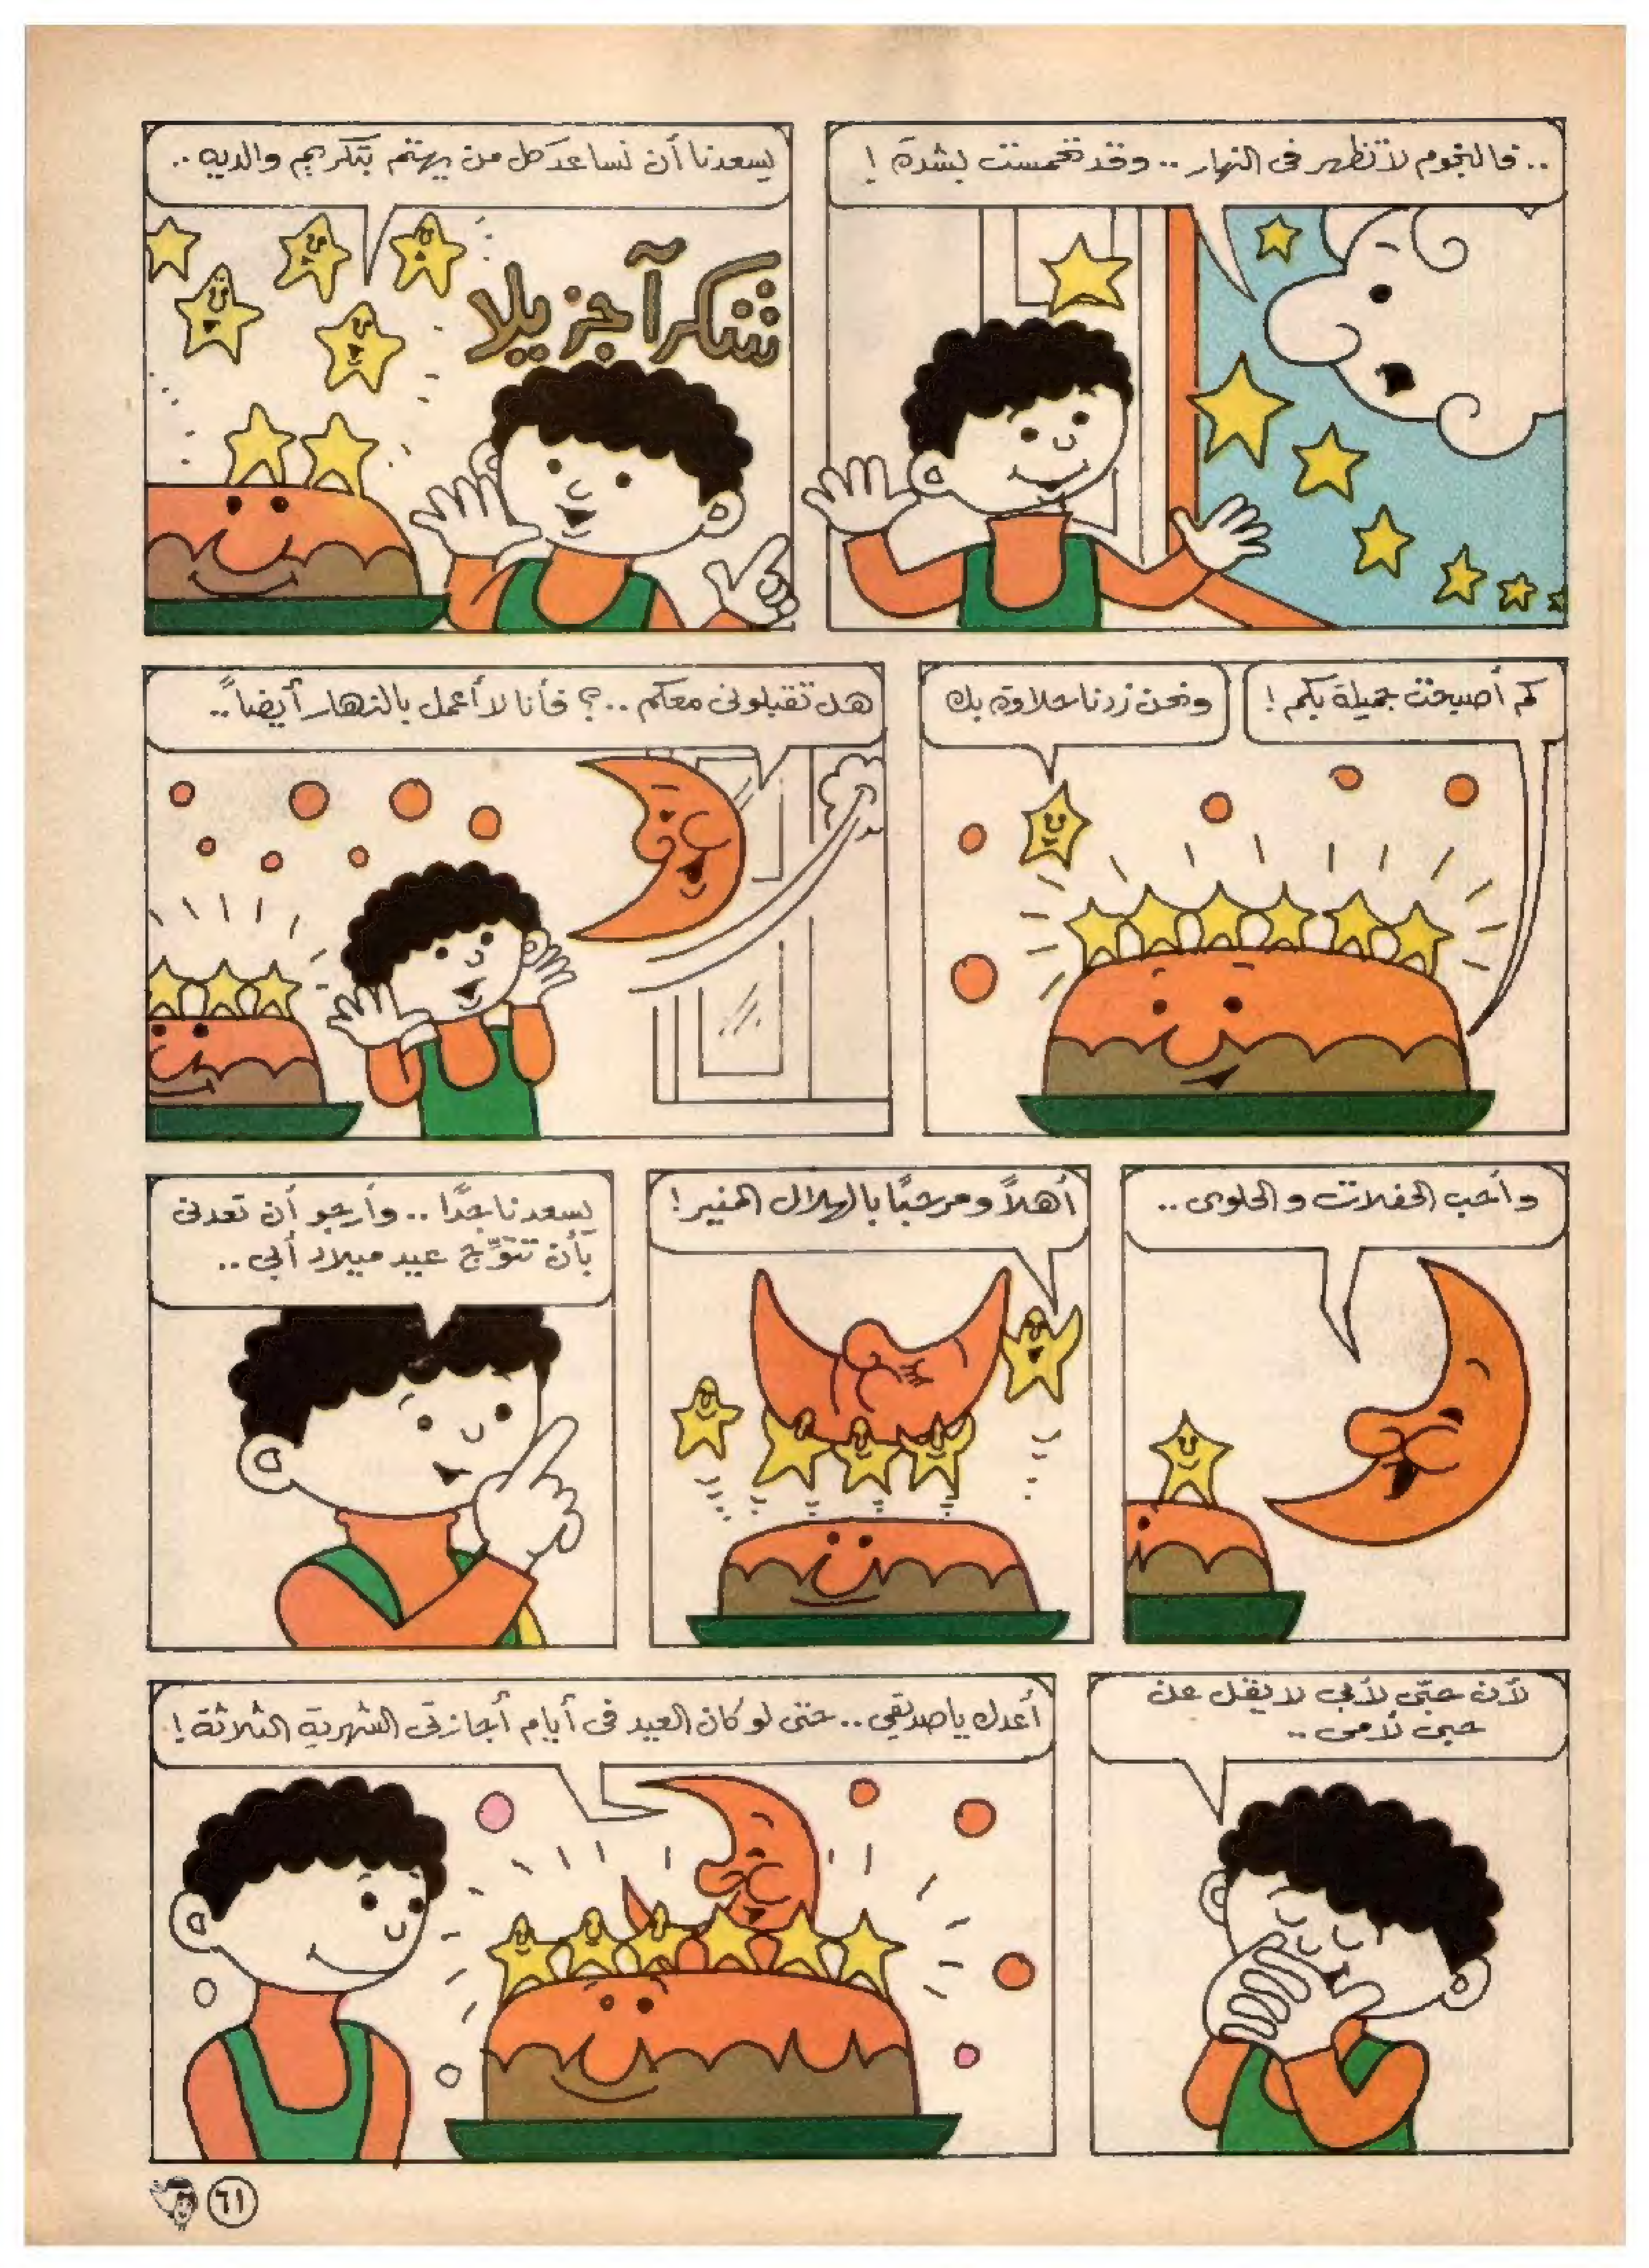 .. فالنجوم لا تظهر فى النهار .. وقد تحمست بشدة !
يسعدنا أن نساعد كل من يهتم بتكريم والديه ..
شكرآ جزيلا
كم أصبحت جميلة بكم !
ونحن زدنا حلاوة بك
هل تقبلونى معكم ..؟ فأنا لا أعمل بالنهار أيضاً ..
وأحب الحفلات والحلوى ..
أهلاً ومرحبًا بالهلال المنير !
يسعدنا جدًا .. وأرجو أن تعدنى
بأن تتوّج عيد ميلاد أبى ..
لأن حبّى لأبى لا يقل عن
حبى لأمى ..
أعدك يا صديقى .. حتى لو كان العيد فى أيام أجازتى الشهرية الثلاثة !
٦١